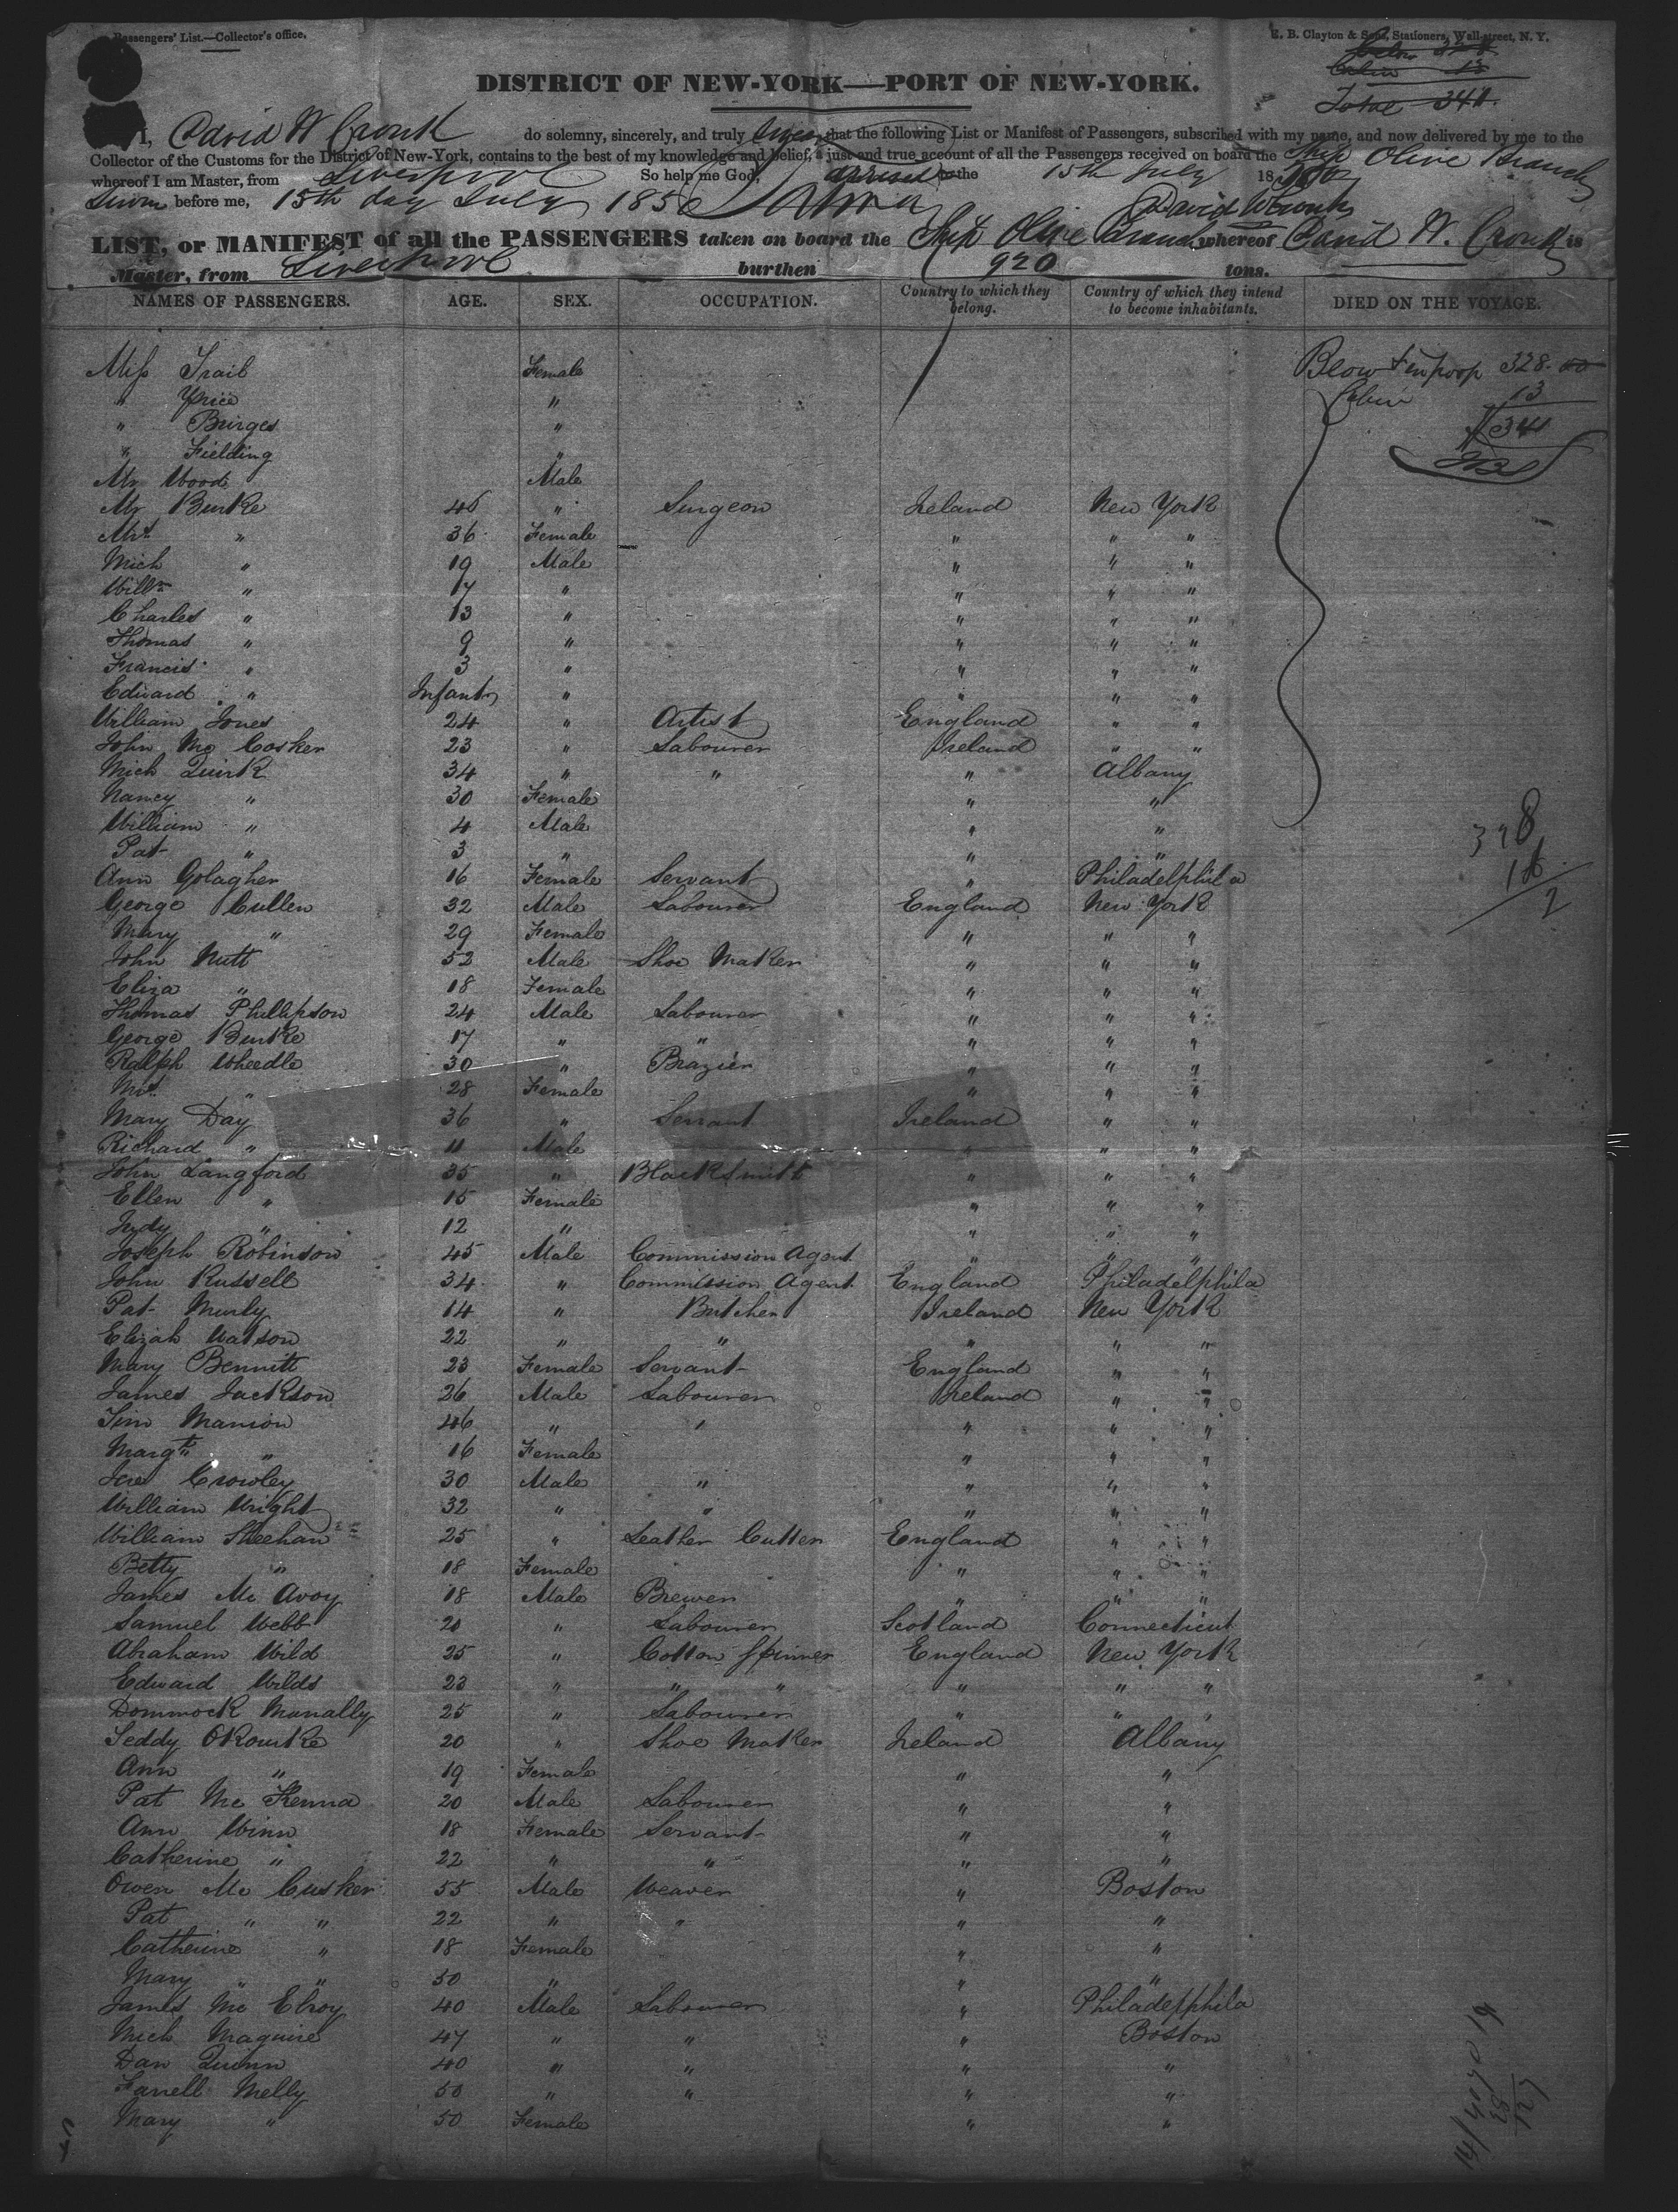 Passengers' List.—Collector's Office.
E. B. Clayton & Sons, Stationers, Wall-street, N. Y.
Below 328
Cabin 13
Total 341.
DISTRICT OF NEW-YORK—PORT OF NEW-YORK.
I, David W Cronk do solemny, sincerely, and truly swear that the following List or Manifest of Passengers, subscribed with my name, and now delivered by me to the
Collector of the Customs for the District of New-York, contains to the best of my knowledge and belief, a just and true account of all the Passengers received on board the Ship Olive Branch
whereof I am Master, from Liverpool So help me God, arrived the 15th July 18
Sworn before me, 15th day July 185 David W Cronk
LIST, or MANIFEST of all the PASSENGERS taken on board the Ship Olive Branch whereof David W. Cronk is
Master, from Liverpool burthen 920 tons.
NAMES OF PASSENGERS. AGE. SEX. OCCUPATION. Country to which they belong. Country of which they intend to become inhabitants. DIED ON THE VOYAGE.
Miss Trail Female Blow & in poop 328.00
" Price " Cabin 13
" Burges " 341
" Fielding "
Mr Wood Male
Mr Burke 46 " Surgeon Ireland New York
Mrs " 36 Female " " "
Mich " 19 Male " " "
Willm " 17 " " " "
Charles " 13 " " " "
Thomas " 9 " " " "
Francis " 3 " " " "
Edward " Infant " " " "
William Jones 24 " Artist England " "
John Mc Cosker 23 " Labourer Ireland " "
Mich Quirk 34 " " " Albany
Nancy " 30 Female " "
William " 4 Male " "
Pat " 3 " " "
Ann Golagher 16 Female Servant " Philadelphila
George Cullen 32 Male Labourer England New York
Mary " 29 Female " " "
John Nutt 52 Male Shoe Maker " " "
Eliza " 18 Female " " "
Thomas Phillipson 24 Male Labourer " " "
George Burke 17 " " " " "
Ralph Wheedle 30 " Brazier " " "
Mrs " 28 Female " " "
Mary Day 36 " Servant Ireland " "
Richard " 11 Male " " "
John Langford 35 " Black Smith " " "
Ellen " 15 Female " " "
Judy " 12 " " " "
Joseph Robinson 45 Male Commission Agent " " "
John Russell 34 " Commission Agent England Philadelphila
Pat Murly 14 " Butcher Ireland New York
Elizah Watson 22 " " " " "
Mary Bennitt 23 Female Servant England " "
James Jackson 26 Male Labourer Ireland " "
Tim Manion 46 " " " " "
Margt " 16 Female " " "
Jere Crowley 30 Male " " " "
William Wright 32 " " " " "
William Sheehan 25 " Leather Cutter England " "
Betty " 18 Female " " "
James Mc Avoy 18 Male Brewer " " "
Samuel Webb 20 " Labourer Scotland Connecticut
Abraham Wild 25 " Cotton Spinner England New York
Edward Wilds 23 " " " " " "
Dommock Manally 25 " Labourer " " "
Teddy ORourke 20 " Shoe Maker Ireland Albany
Ann " 19 Female " "
Pat Mc Kenna 20 Male Labourer " "
Ann Winn 18 Female Servant " "
Catherine " 22 " " " "
Owen Mc Cusker 55 Male Weaver " Boston
Pat " " 22 " " " "
Catherine " 18 Female " "
Mary " " 50 " " "
James Mc Elroy 40 Male Labourer " Philadelphila
Mich Maguire 47 " " " Boston
Dan Quinn 40 " " " "
Farrell Melly 50 " " " "
Mary " 50 Female " "